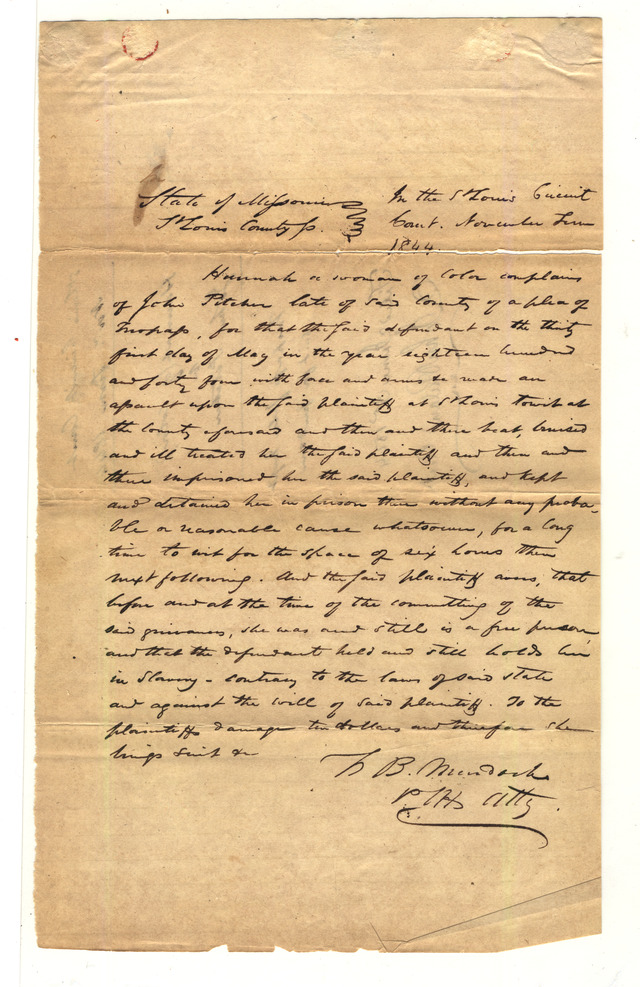 State of Missouri
St Louis County ss.
In the St Louis Circuit
Court. November Term
1844.
Hannah a woman of color complains
of John Pitcher late of said County of a plea of
Trespass, for that the said defendant on the thirty
first day of May in the year eighteen hundred
and forty four with force and arms &c made an
assault upon the said plaintiff at St Louis towit at
the County aforesaid and then and there beat, bruised
and ill treated her the said plaintiff and then and
there imprisoned her the said plaintiff, and kept
and detained her in prison there without any proba-
ble or reasonable cause whatsoever, for a long
time to wit for the space of six hours then
next following. And the said plaintiff avers, that
before and at the time of the committing of the
said grievances, she was and still is a free person
and that the defendant held and still holds her
in Slavery - contrary to the laws of said state
and against the will of said plaintiff. To the
plaintiffs damage ten dollars and therefore she
brings suit &c
F B. Murdoch
Plffs Atty.